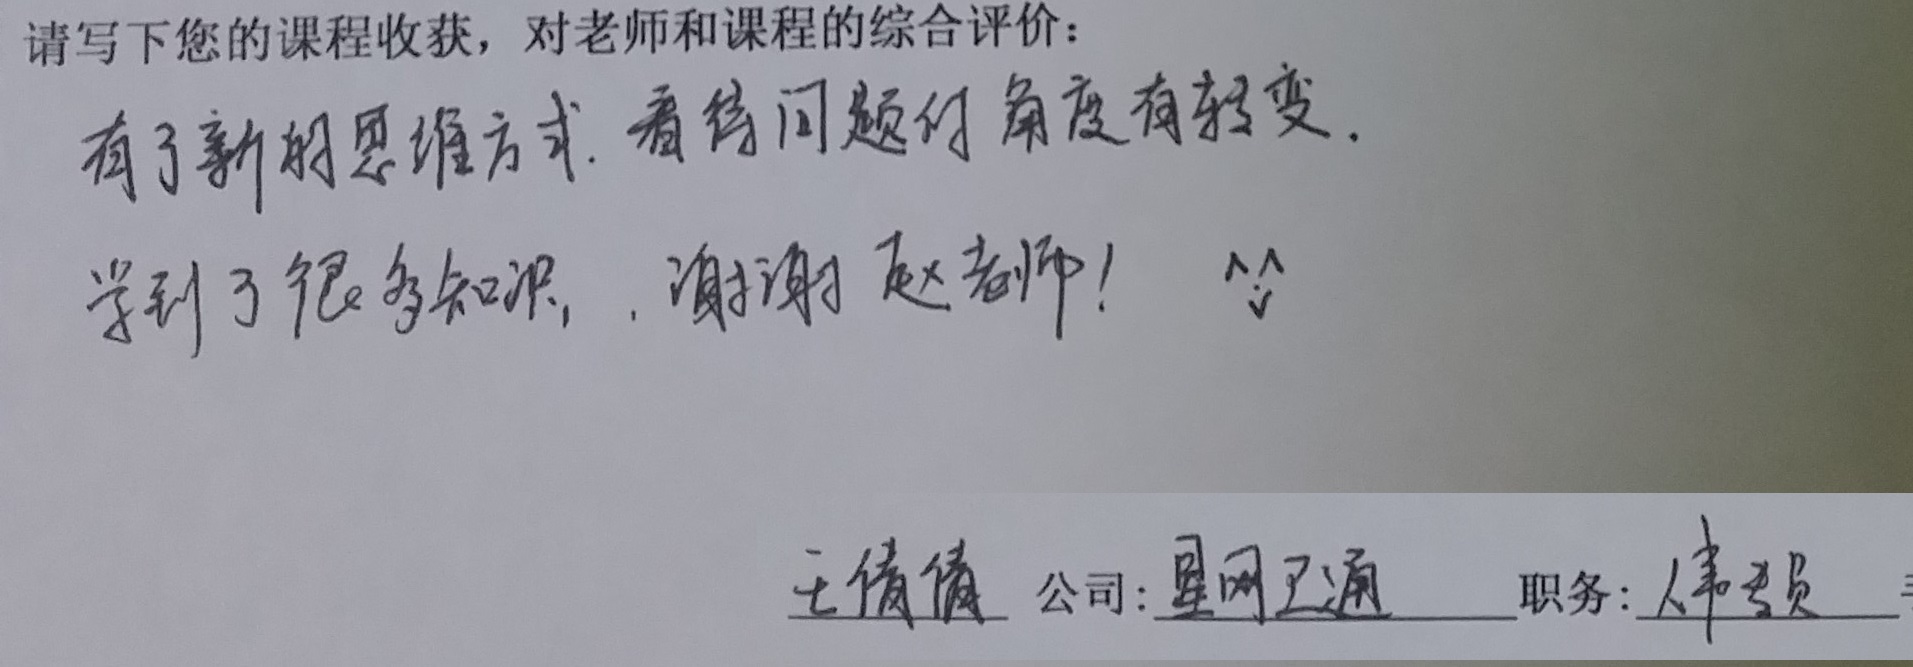 请写下您的课程收获，对老师和课程的综合评价：
有了新的思维方式. 看待问题的角度有转变.
学到了很多知识, . 谢谢赵老师! ^^
王倩倩 公司: 星网卫通 职务: 人事专员